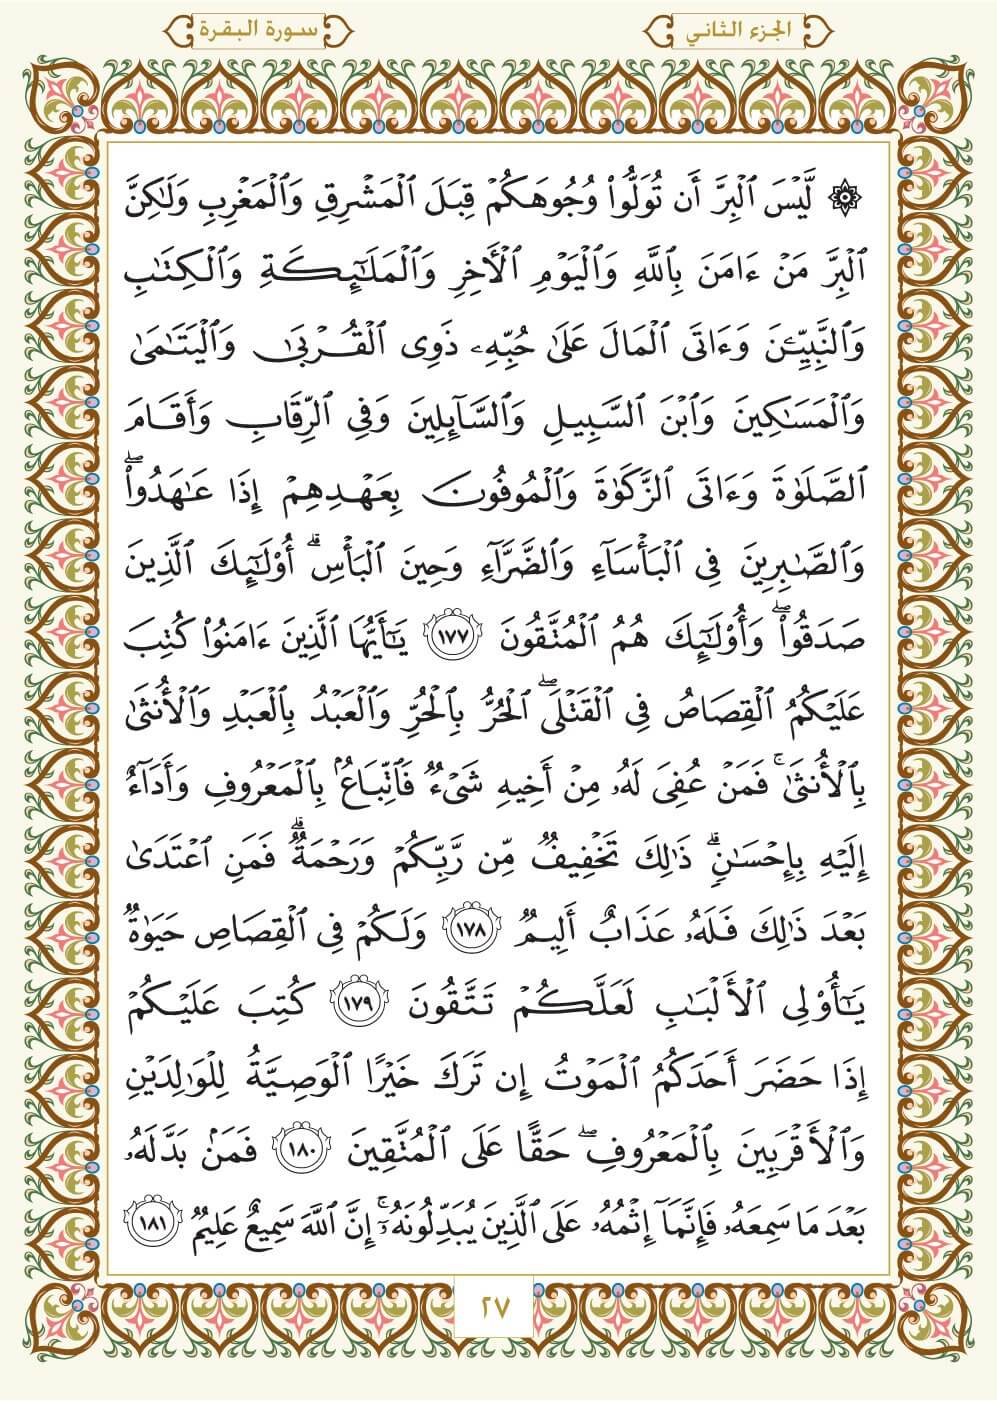 الجزء الثاني
سورة البقرة
۞ لَّيۡسَ ٱلۡبِرَّ أَن تُوَلُّواْ وُجُوهَكُمۡ قِبَلَ ٱلۡمَشۡرِقِ وَٱلۡمَغۡرِبِ وَلَٰكِنَّ
ٱلۡبِرَّ مَنۡ ءَامَنَ بِٱللَّهِ وَٱلۡيَوۡمِ ٱلۡأٓخِرِ وَٱلۡمَلَٰٓئِكَةِ وَٱلۡكِتَٰبِ
وَٱلنَّبِيِّـۧنَ وَءَاتَى ٱلۡمَالَ عَلَىٰ حُبِّهِۦ ذَوِي ٱلۡقُرۡبَىٰ وَٱلۡيَتَٰمَىٰ
وَٱلۡمَسَٰكِينَ وَٱبۡنَ ٱلسَّبِيلِ وَٱلسَّآئِلِينَ وَفِي ٱلرِّقَابِ وَأَقَامَ
ٱلصَّلَوٰةَ وَءَاتَى ٱلزَّكَوٰةَ وَٱلۡمُوفُونَ بِعَهۡدِهِمۡ إِذَا عَٰهَدُواْۖ
وَٱلصَّٰبِرِينَ فِي ٱلۡبَأۡسَآءِ وَٱلضَّرَّآءِ وَحِينَ ٱلۡبَأۡسِۗ أُوْلَٰٓئِكَ ٱلَّذِينَ
صَدَقُواْۖ وَأُوْلَٰٓئِكَ هُمُ ٱلۡمُتَّقُونَ ١٧٧ يَٰٓأَيُّهَا ٱلَّذِينَ ءَامَنُواْ كُتِبَ
عَلَيۡكُمُ ٱلۡقِصَاصُ فِي ٱلۡقَتۡلَىۖ ٱلۡحُرُّ بِٱلۡحُرِّ وَٱلۡعَبۡدُ بِٱلۡعَبۡدِ وَٱلۡأُنثَىٰ
بِٱلۡأُنثَىٰۚ فَمَنۡ عُفِيَ لَهُۥ مِنۡ أَخِيهِ شَيۡءٞ فَٱتِّبَاعُۢ بِٱلۡمَعۡرُوفِ وَأَدَآءٌ
إِلَيۡهِ بِإِحۡسَٰنٖۗ ذَٰلِكَ تَخۡفِيفٞ مِّن رَّبِّكُمۡ وَرَحۡمَةٞۗ فَمَنِ ٱعۡتَدَىٰ
بَعۡدَ ذَٰلِكَ فَلَهُۥ عَذَابٌ أَلِيمٞ ١٧٨ وَلَكُمۡ فِي ٱلۡقِصَاصِ حَيَوٰةٞ
يَٰٓأُوْلِي ٱلۡأَلۡبَٰبِ لَعَلَّكُمۡ تَتَّقُونَ ١٧٩ كُتِبَ عَلَيۡكُمۡ
إِذَا حَضَرَ أَحَدَكُمُ ٱلۡمَوۡتُ إِن تَرَكَ خَيۡرًا ٱلۡوَصِيَّةُ لِلۡوَٰلِدَيۡنِ
وَٱلۡأَقۡرَبِينَ بِٱلۡمَعۡرُوفِۖ حَقًّا عَلَى ٱلۡمُتَّقِينَ ١٨٠ فَمَنۢ بَدَّلَهُۥ
بَعۡدَ مَا سَمِعَهُۥ فَإِنَّمَآ إِثۡمُهُۥ عَلَى ٱلَّذِينَ يُبَدِّلُونَهُۥٓۚ إِنَّ ٱللَّهَ سَمِيعٌ عَلِيمٞ ١٨١
٢٧